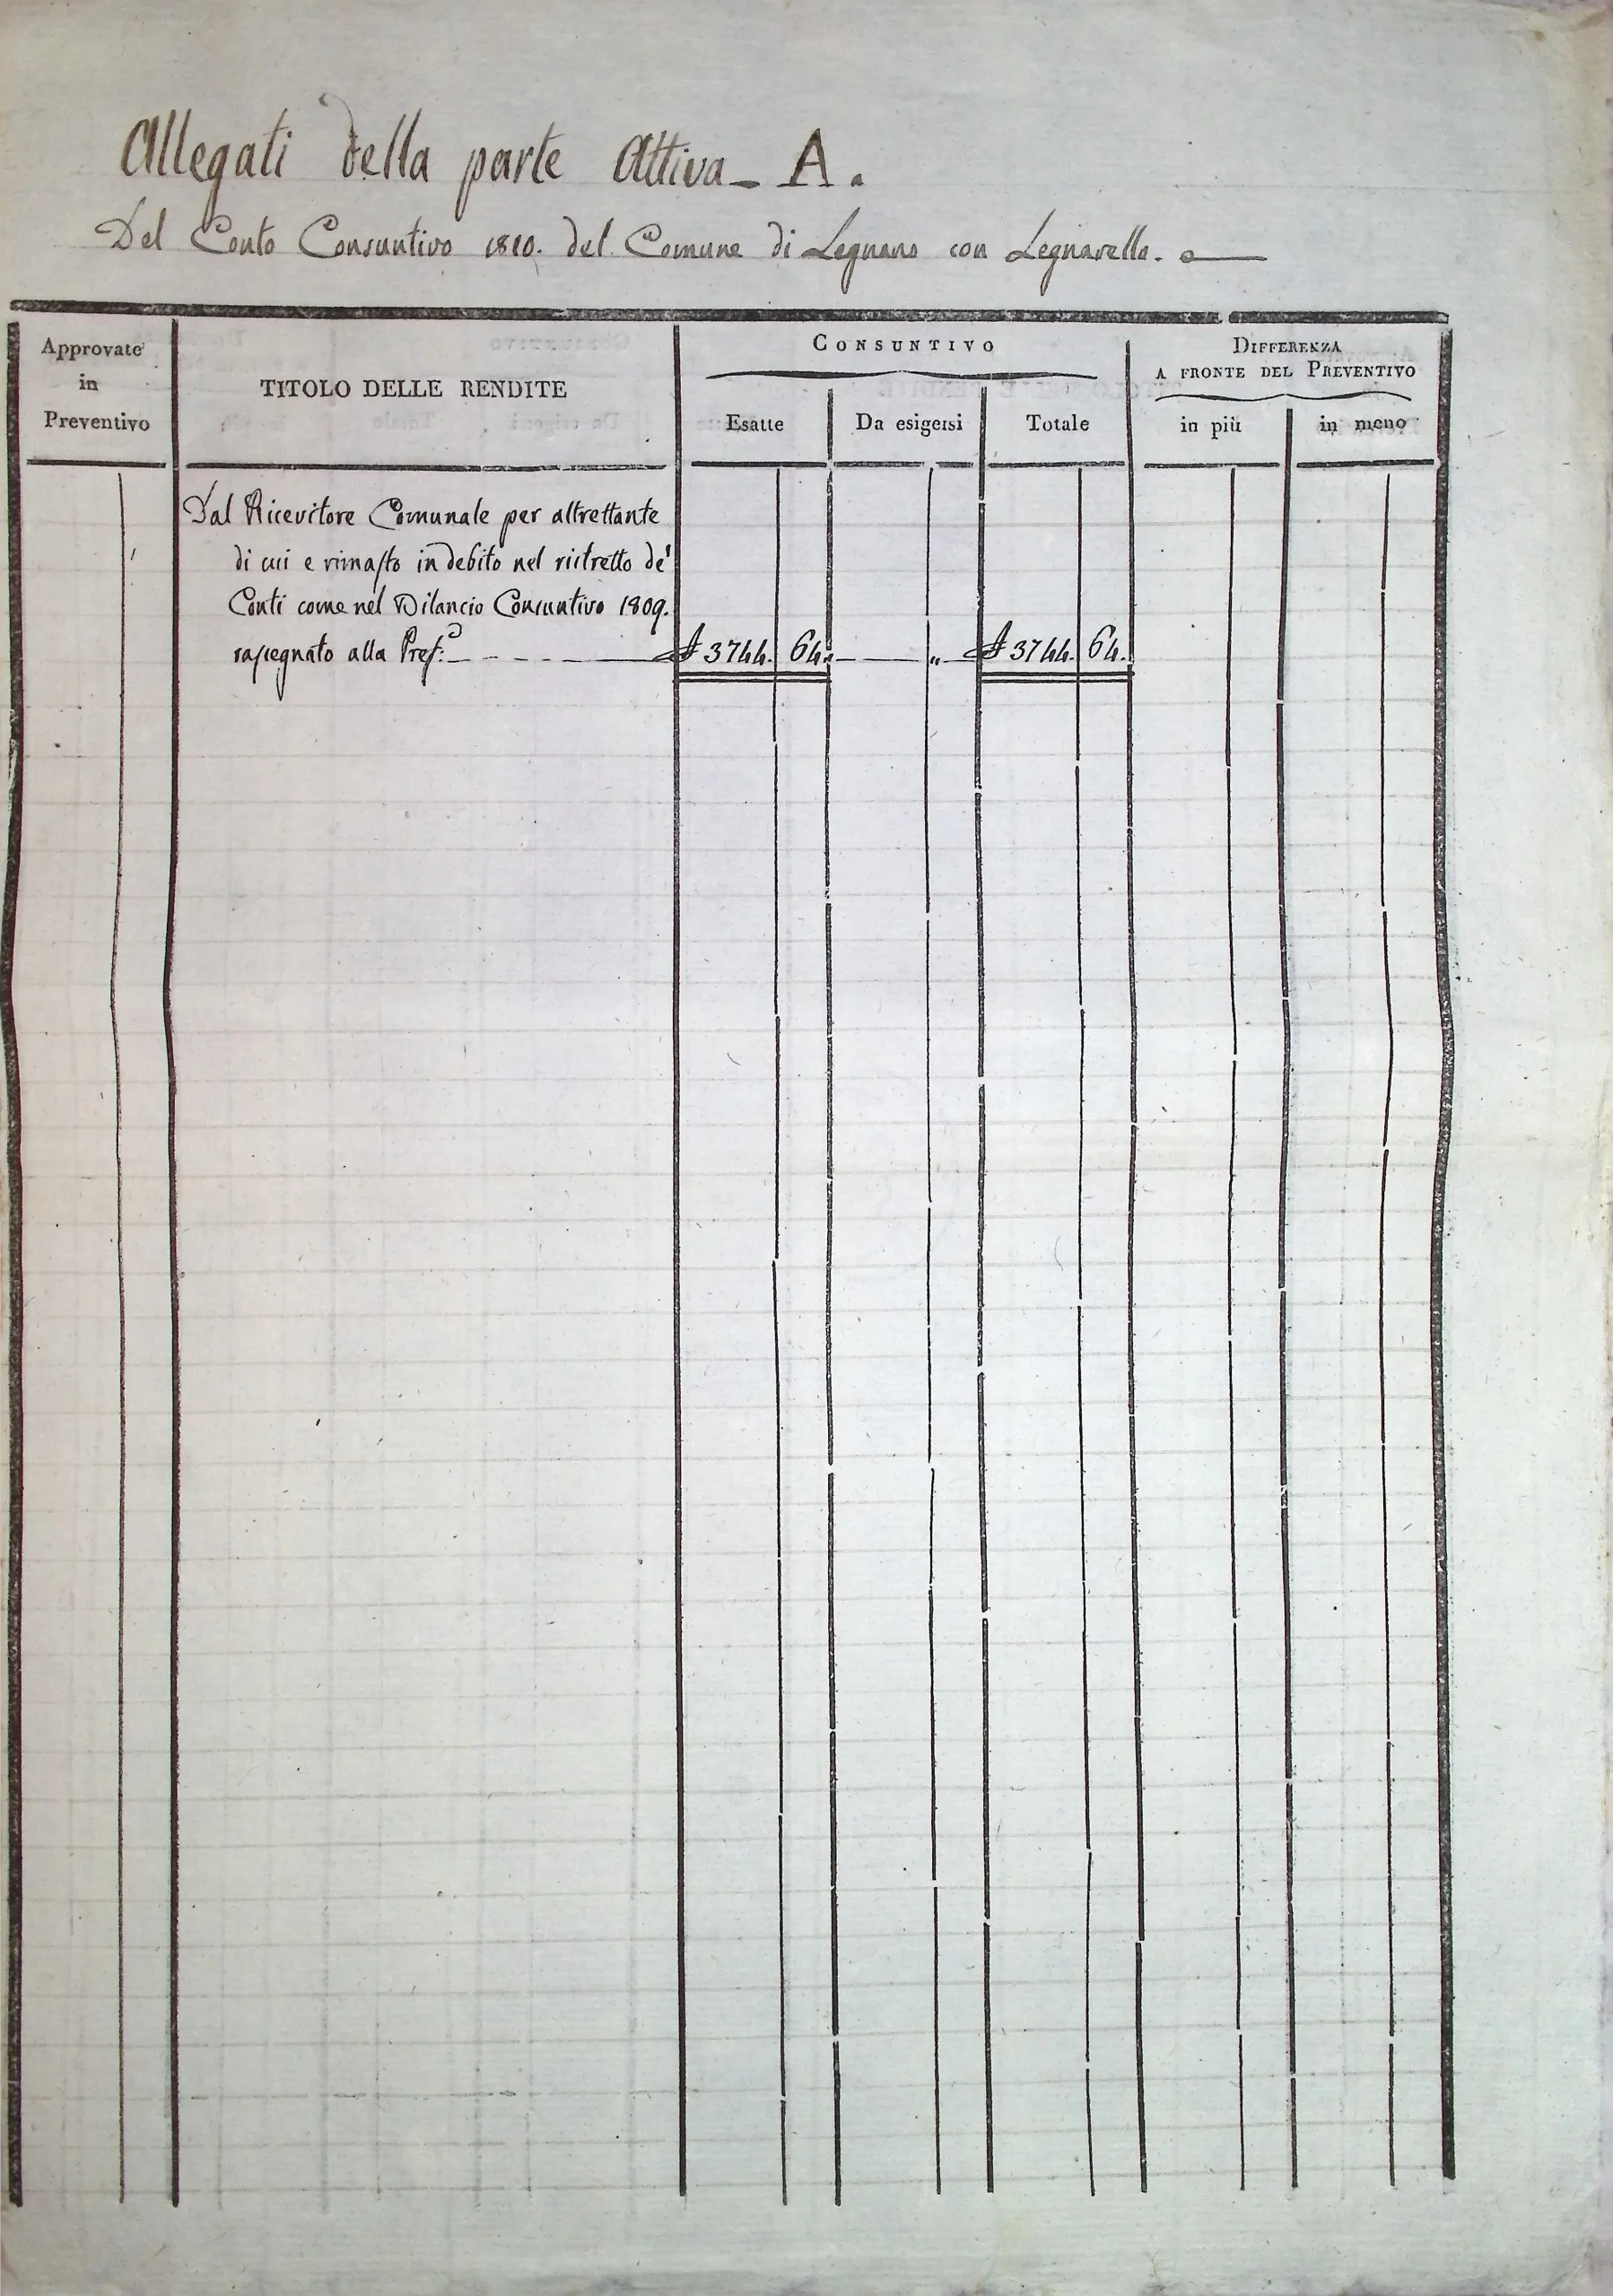 Allegati della parte Attiva - A.
Del Conto Consuntivo 1810. del Comune di Legnano con Legnarello.
Approvate in Preventivo
TITOLO DELLE RENDITE
CONSUNTIVO
Esatte
Da esigersi
Totale
DIFFERENZA
A FRONTE DEL PREVENTIVO
in più
in meno
Dal Ricevitore Comunale per altrettante
di cui e rimasto in debito nel ristretto de'
Conti come nel Bilancio Consuntivo 1809.
rassegnato alla Pref:a 3744. 64. " 3744. 64.